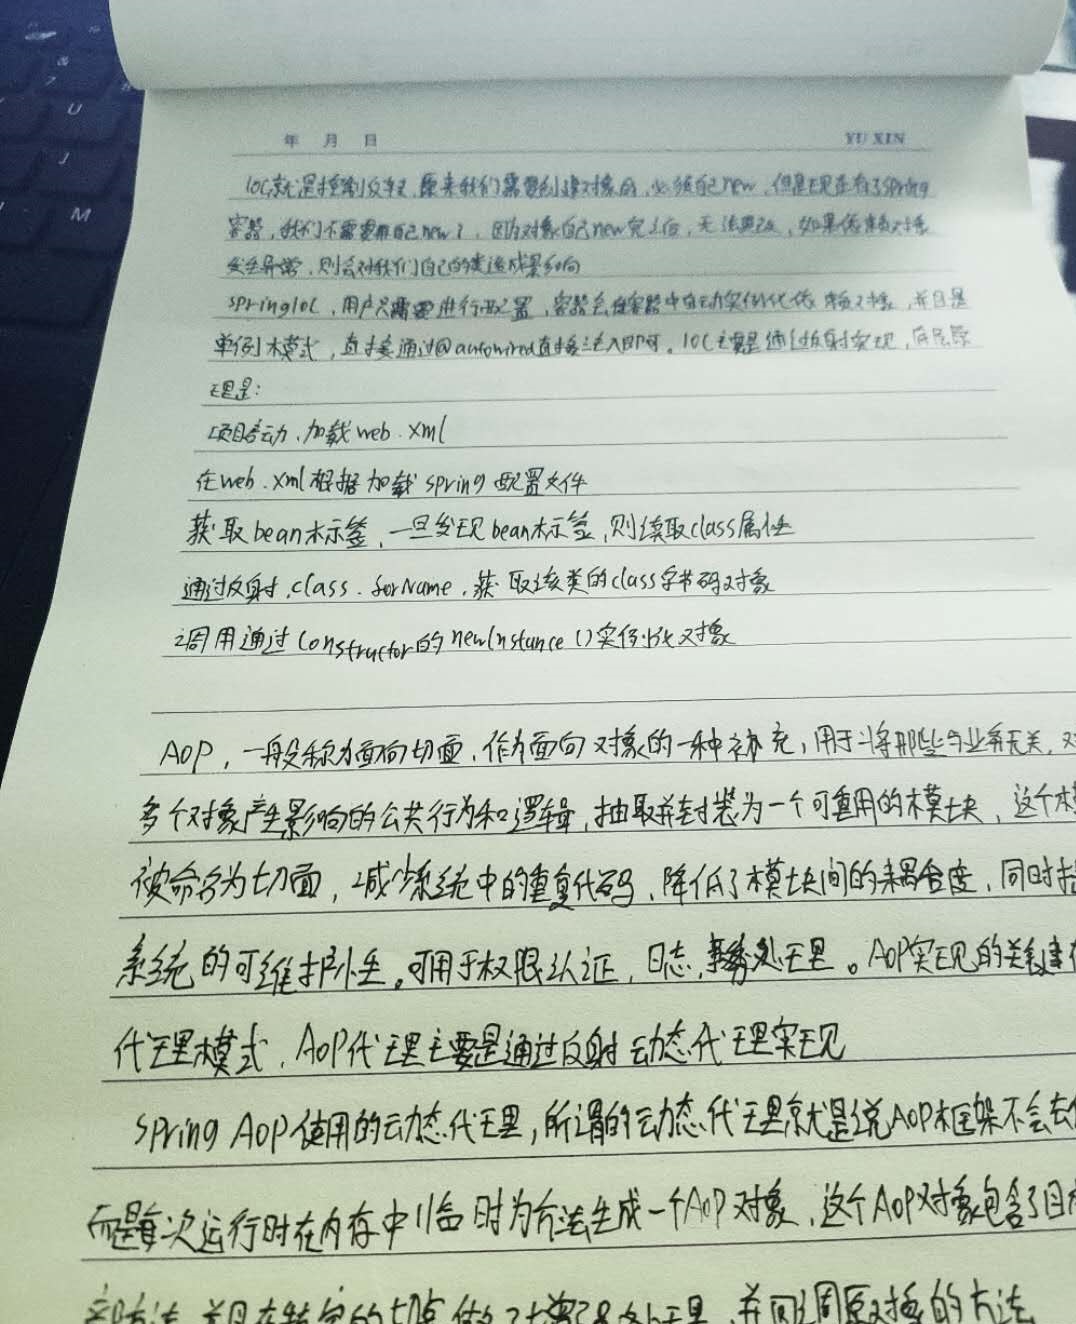 年 月 日 YU XIN
IOC就是控制反转，原来我们需要创建对象时，必须自己new，但是现在有了spring
容器，我们不需要再自己new了，因为对象自己new完之后，无法更改，如果依赖对象
发生异常，则会对我们自己的类造成影响
springIOC，用户只需要进行配置，容器会在容器中自动实例化依赖对象，并且是
单例模式，直接通过@autowired直接注入即可。IOC主要是通过反射实现，底层原
理是：
项目启动，加载web.xml
在web.xml根据加载spring配置文件
获取bean标签，一旦发现bean标签，则读取class属性
通过反射，class.forName，获取该类的class字节码对象
调用通过constructor的newInstance()实例化对象
AOP，一般称为面向切面，作为面向对象的一种补充，用于将那些与业务无关，对
多个对象产生影响的公共行为和逻辑，抽取并封装为一个可重用的模块，这个模
被命名为切面，减少系统中的重复代码，降低了模块间的耦合度，同时提
系统的可维护性。可用于权限认证，日志，事务处理。AOP实现的关键在
代理模式，AOP代理主要是通过反射动态代理实现
spring AOP使用的动态代理，所谓的动态代理就是说AOP框架不会去
而是每次运行时在内存中临时为方法生成一个AOP对象，这个AOP对象包含了目标
部方法，并且在特定的切点做了增强处理，并回调原对象的方法